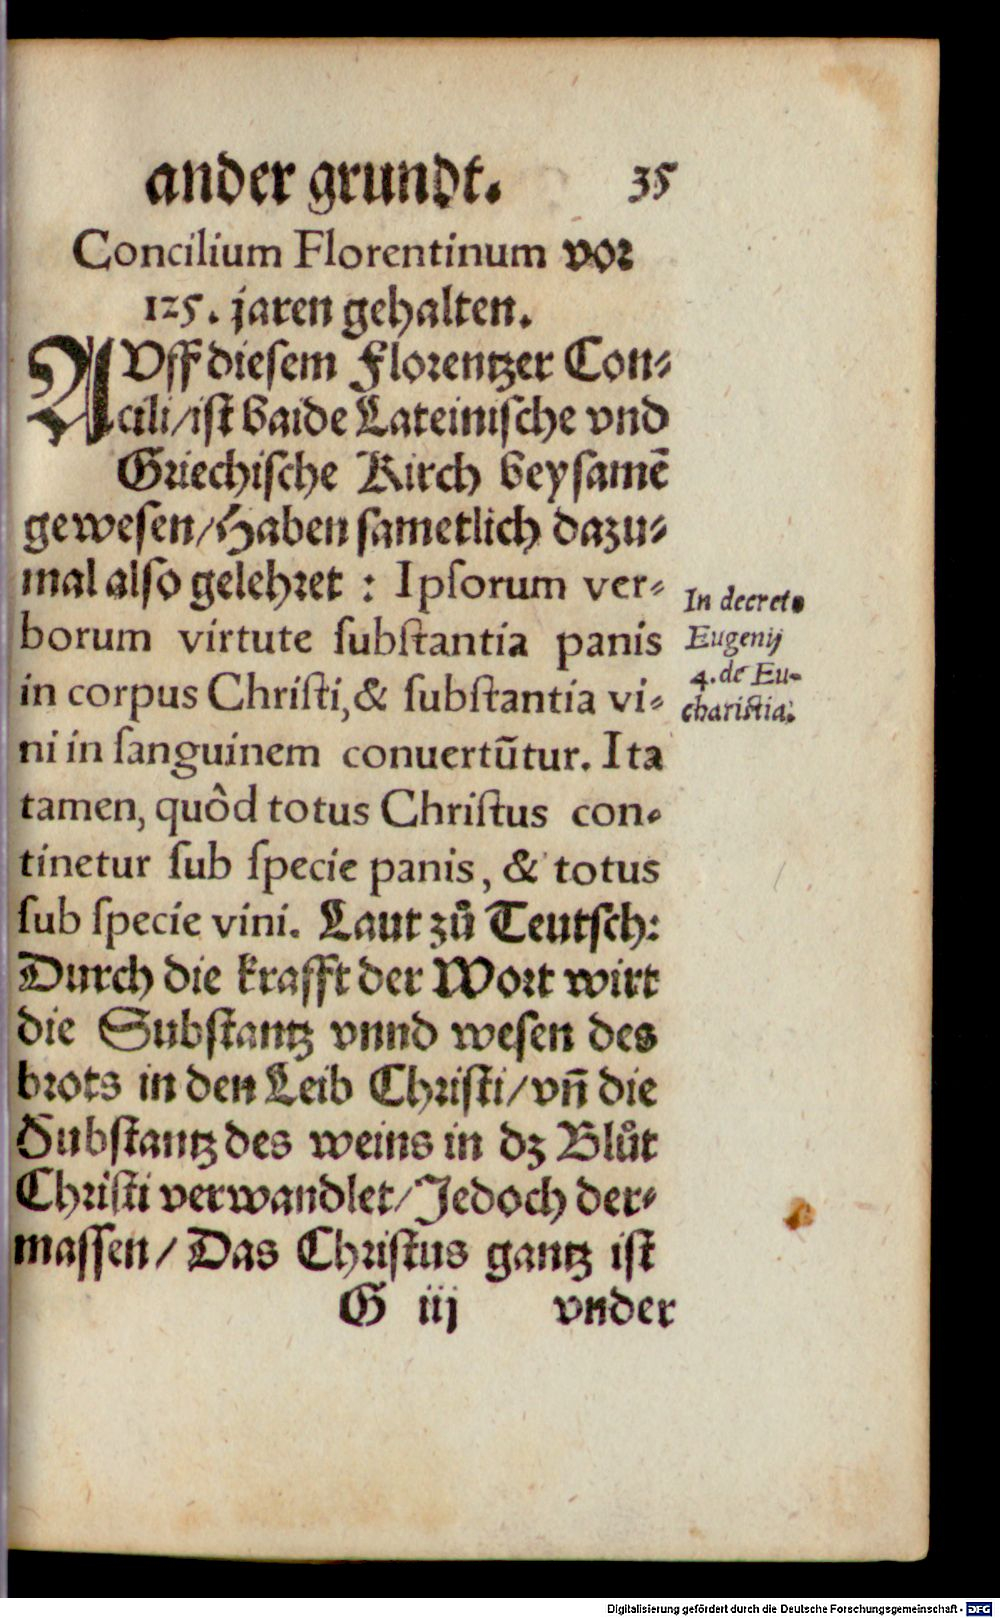 ander grundt. 35
Concilium Florentinum vor
125. jaren gehalten.
AVff diesem Florentzer Con⸗
cili/ist baide Lateinische vnd
Griechische Kirch beysamē
gewesen/Haben sametlich dazu⸗
mal also gelehret : Ipsorum ver⸗
borum virtute substantia panis
in corpus Christi, & substantia vi⸗
ni in sanguinem conuertūtur. Ita
tamen, quôd totus Christus con⸗
tinetur sub specie panis, & totus
sub specie vini. Laut zů Teutsch:
Durch die krafft der Wort wirt
die Substantz vnnd wesen des
brots in den Leib Christi/vn̄ die
Substantz des weins in dz Blůt
Christi verwandlet/Jedoch der⸗
massen/Das Christus gantz ist
G iij vnder
In decreto
Eugenij
4. de Eu⸗
charistia.
Digitalisierung gefördert durch die Deutsche Forschungsgemeinschaft - DFG